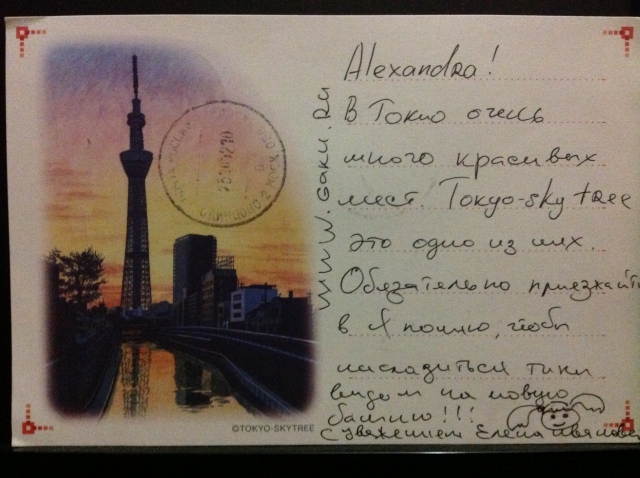 Alexandra!
В Токио очень
много красивых
мест. Tokyo-sky tree
это одно из них.
Обязательно приезжайте
в Японию, чтобы
насладиться
видом на новую
башню!!!
С уважением Елена
www.gaku.ru
©TOKYO-SKYTREE